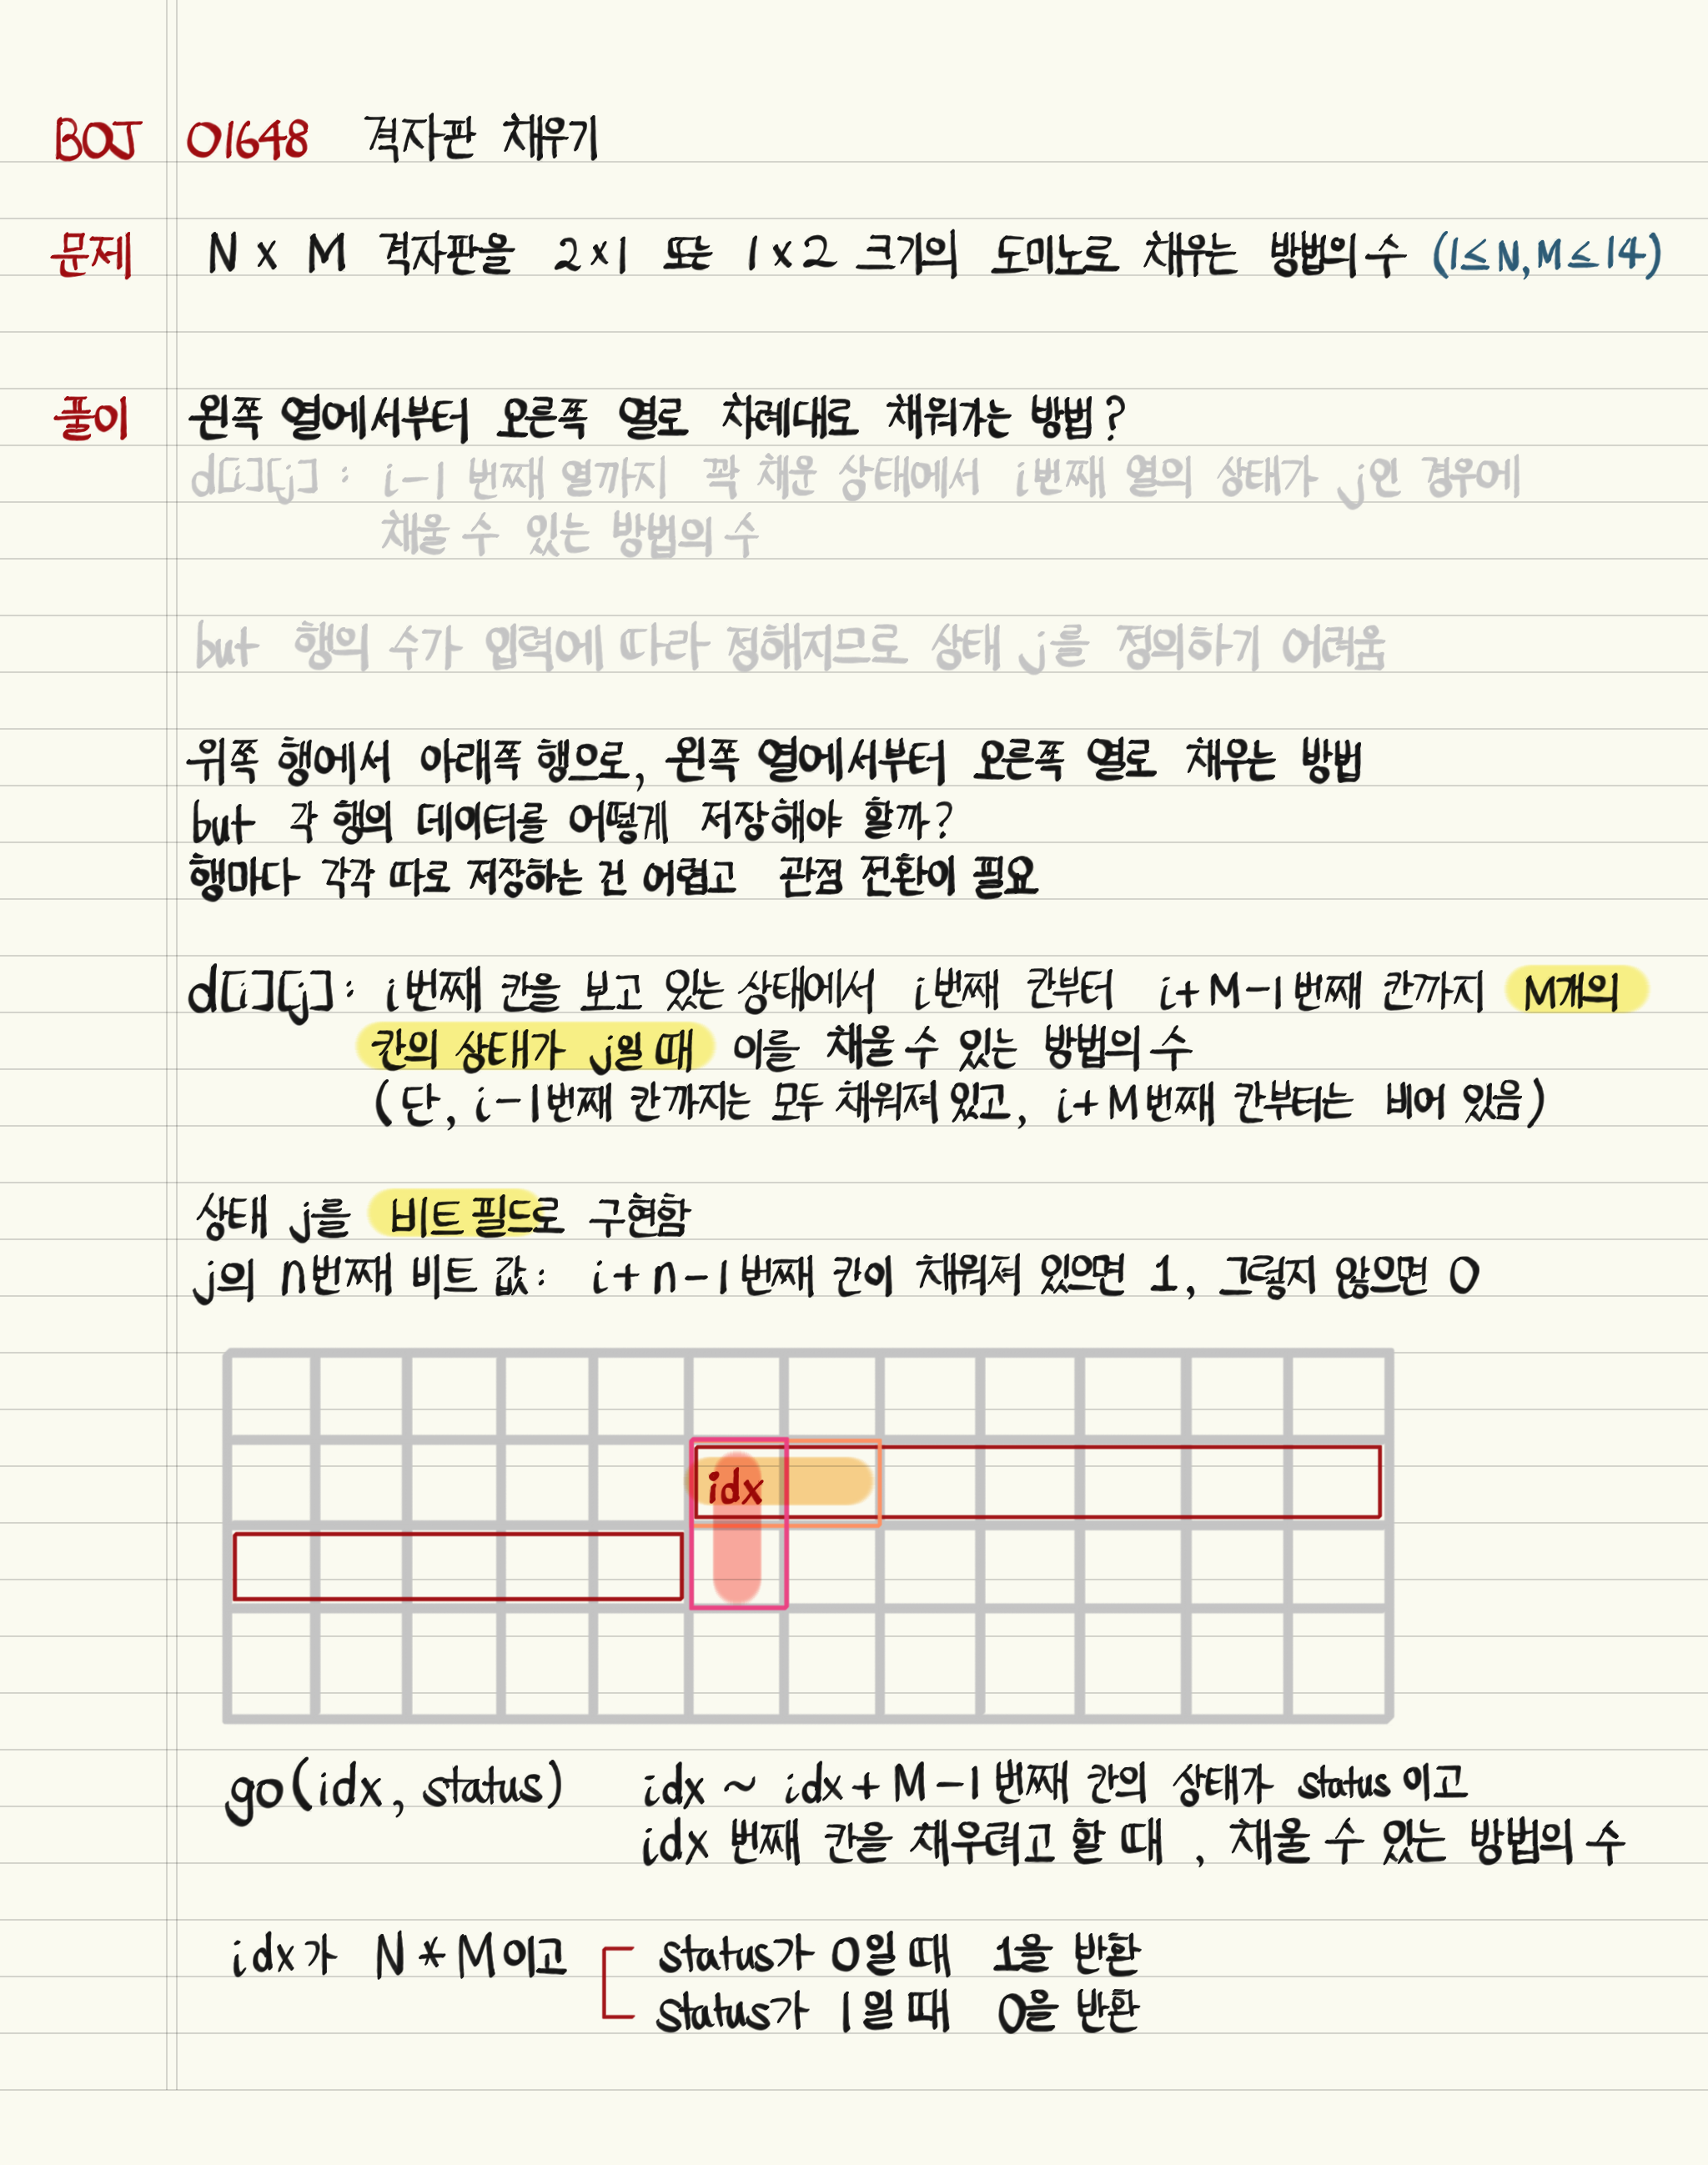 BOJ 01648 격자판 채우기
문제 N x M 격자판을 2x1 또는 1x2 크기의 도미노로 채우는 방법의 수 (1≤N,M≤14)
풀이 왼쪽 열에서부터 오른쪽 열로 차례대로 채워가는 방법?
d[i][j] : i-1 번째 열까지 꽉 채운 상태에서 i번째 열의 상태가 j인 경우에
채울 수 있는 방법의 수
but 행의 수가 입력에 따라 정해지므로 상태 j를 정의하기 어려움
위쪽 행에서 아래쪽 행으로, 왼쪽 열에서부터 오른쪽 열로 채우는 방법
but 각 행의 데이터를 어떻게 저장해야 할까?
행마다 각각 따로 저장하는 건 어렵고 관점 전환이 필요
d[i][j] : i번째 칸을 보고 있는 상태에서 i번째 칸부터 i+M-1번째 칸까지 M개의
칸의 상태가 j일 때 이를 채울 수 있는 방법의 수
(단, i-1번째 칸까지는 모두 채워져 있고, i+M번째 칸부터는 비어 있음)
상태 j를 비트 필드로 구현함
j의 n번째 비트 값: i+n-1번째 칸이 채워져 있으면 1, 그렇지 않으면 0
idx
go(idx, status) idx ~ idx+M-1번째 칸의 상태가 status이고
idx 번째 칸을 채우려고 할 때, 채울 수 있는 방법의 수
idx가 N*M이고 status가 0일 때 1을 반환
status가 1일 때 0을 반환